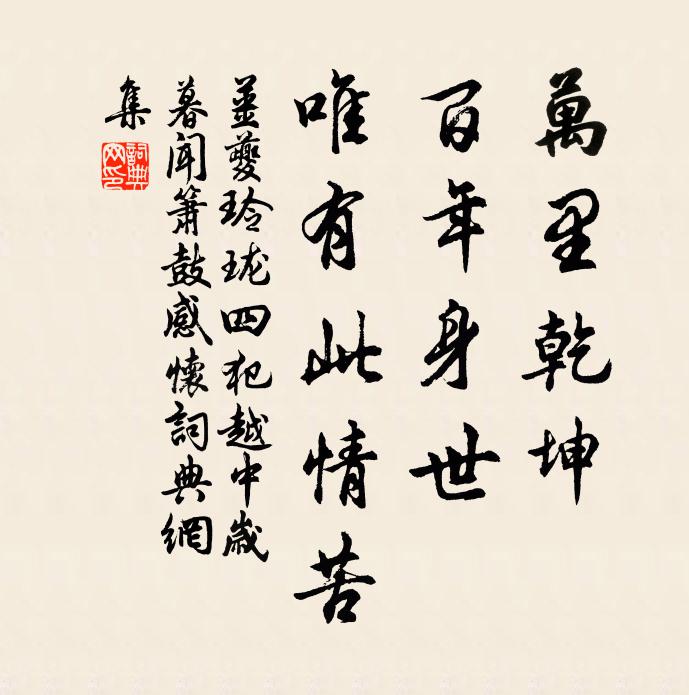 萬里乾坤
百年身世
唯有此情苦
姜夔玲瓏四犯越中歲
暮聞簫鼓感懷詞典網
集
詞典
网印